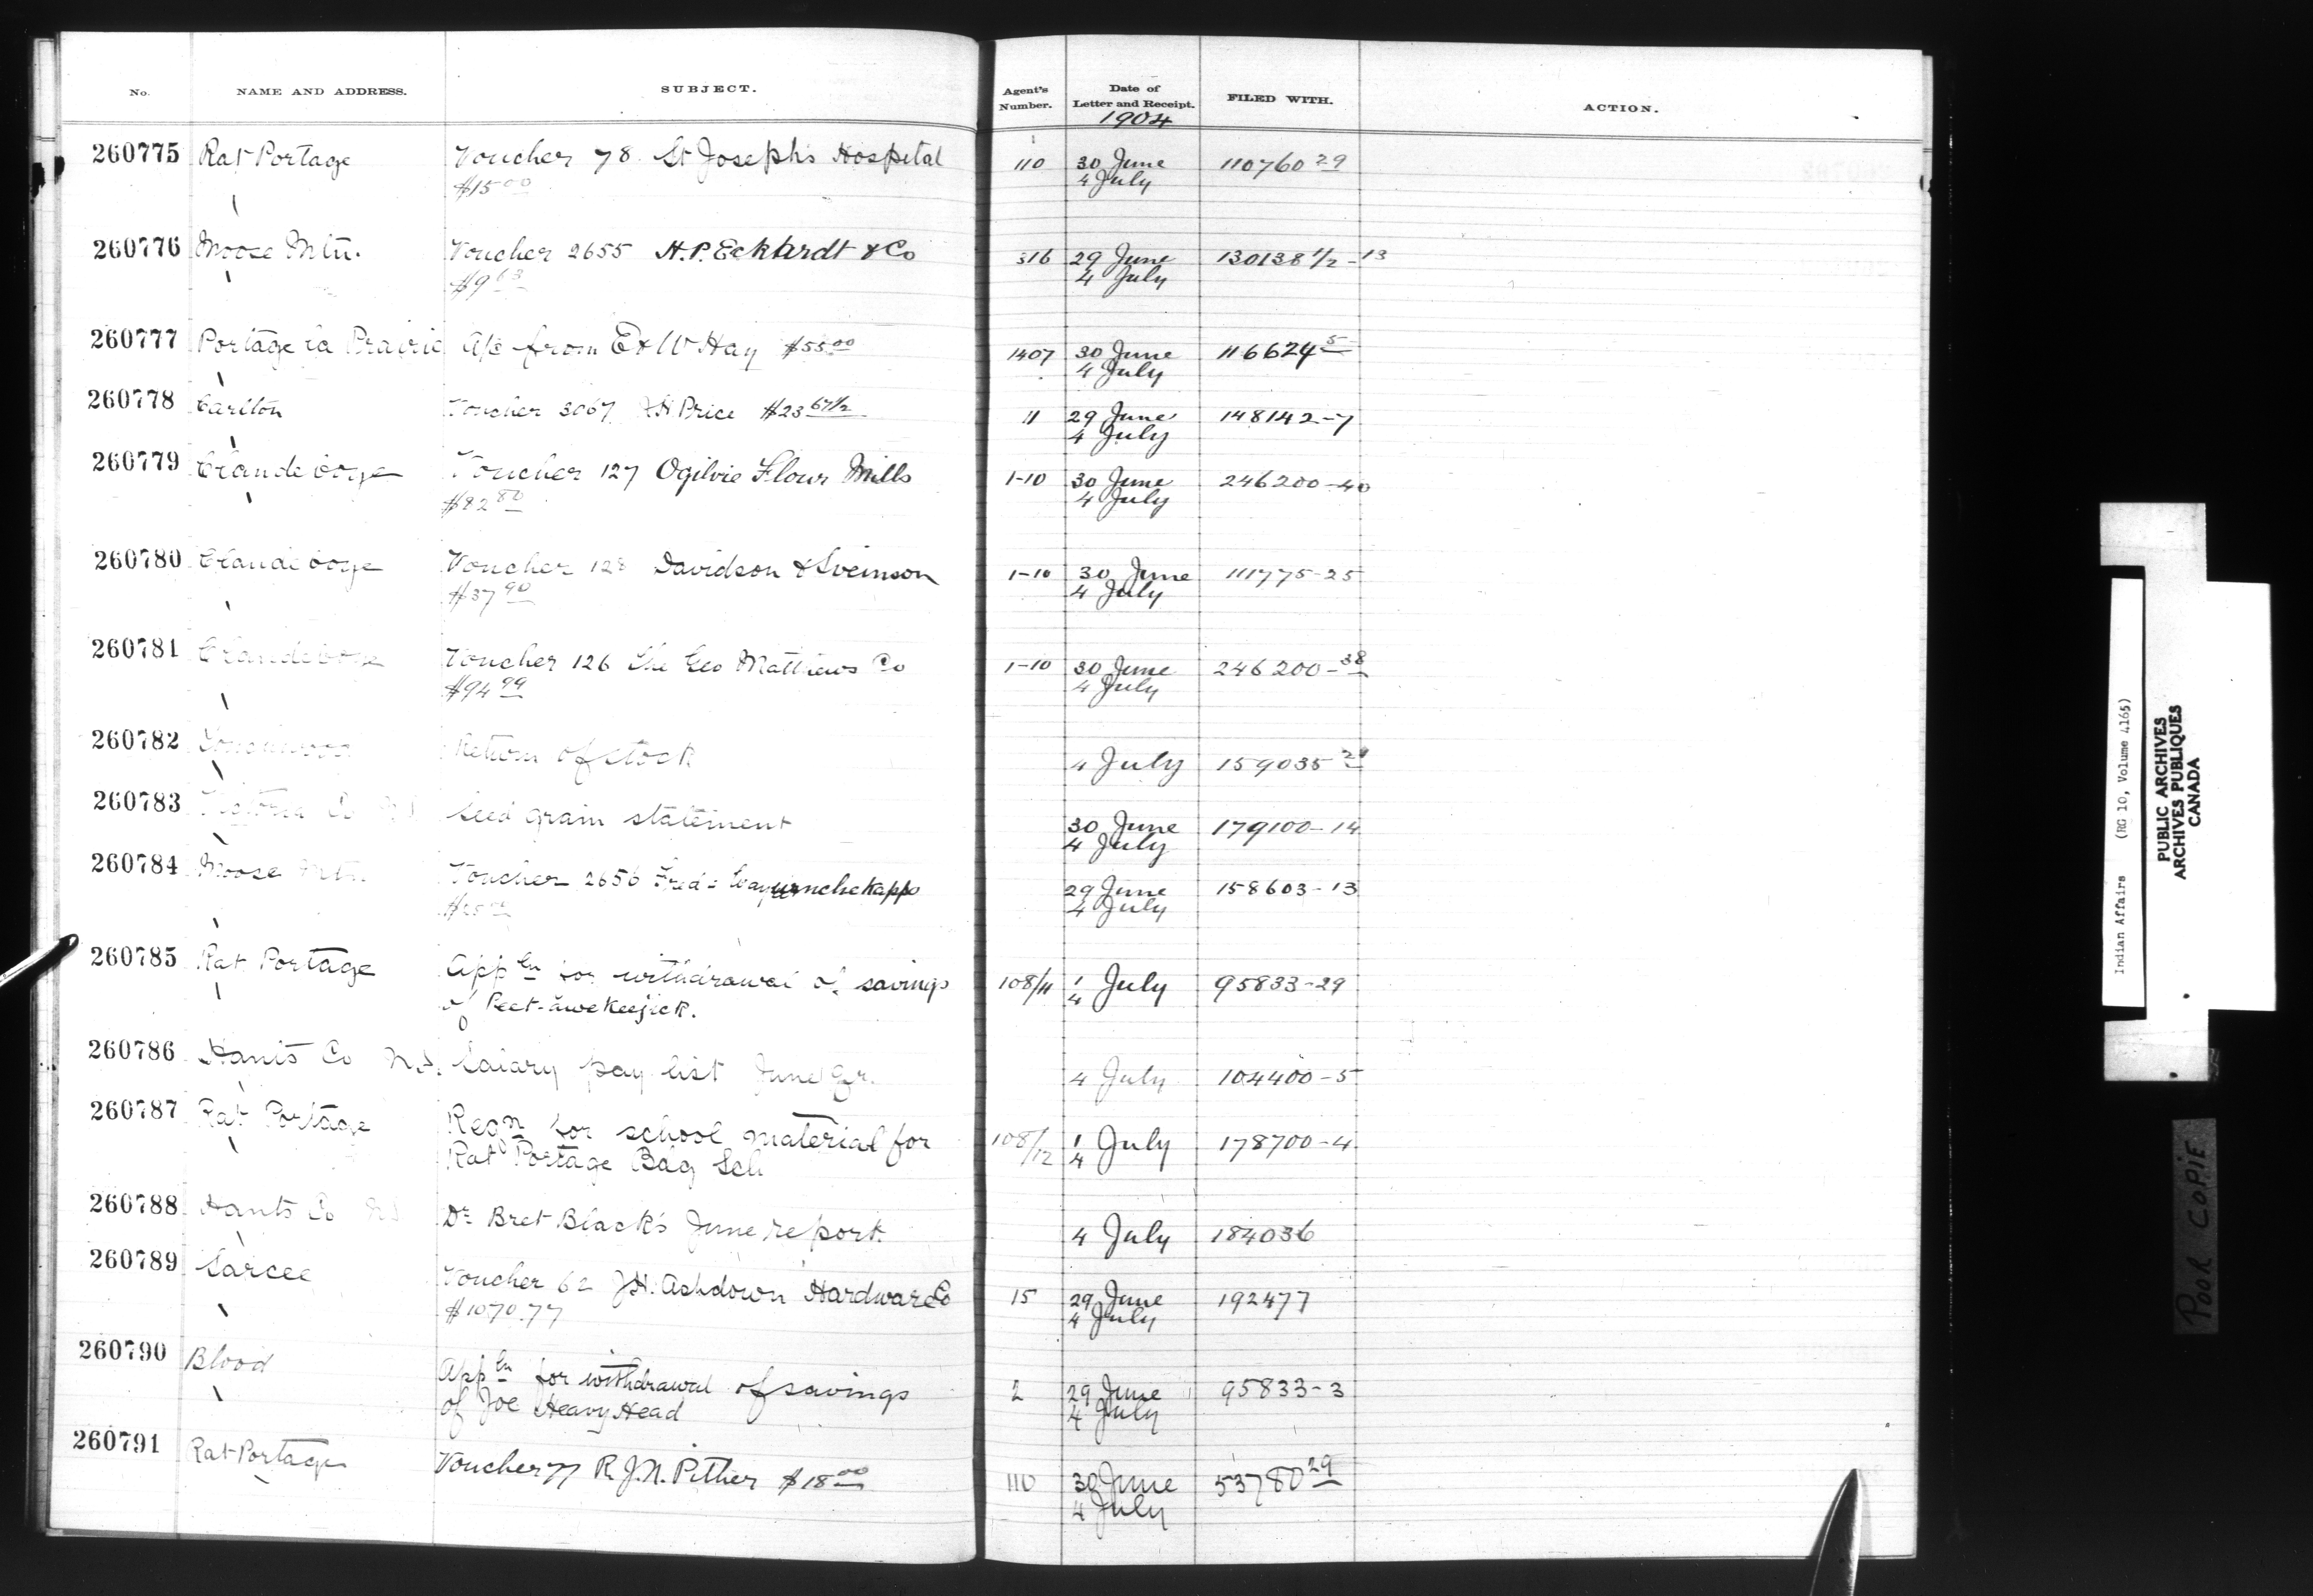 No. NAME AND ADDRESS. SUBJECT. Agent's Number. Date of Letter and Receipt. FILED WITH. ACTION.
1904
260775 Rat Portage Voucher 78 St Joseph's Hospital 110 30 June 110760 29
$15 00 4 July
260776 Moose Mtn. Voucher 2655 H.P. Eckhardt & Co 316 29 June 130138 1/2 - 13
$9 63 4 July
260777 Portage la Prairie A/c from E & W Hay $55 00 1407 30 June 116624 5
4 July
260778 Carlton Voucher 3067 Price $23 67 1/2 11 29 June 148142-7
4 July
260779 Clandeboye Voucher 127 Ogilvie Flour Mills 1-10 30 June 246200-40
$82 80 4 July
260780 Clandeboye Voucher 128 Davidson & Sveinson 1-10 30 June 111775-25
$37 90 4 July
260781 Clandeboye Voucher 126 The Geo Matthews Co 1-10 30 June 246200-38
$94 99 4 July
260782 Touchwood Return of stock 4 July 159035
260783 Victoria Co N.S. Seed grain statement 30 June 179100-14
4 July
260784 Moose Mtn. Voucher 2656 Fred 29 June 158603-13
4 July
260785 Rat Portage Appln for withdrawal of savings 108/11 1 July 95833-29
of Peet-awekeejick. 4
260786 Hants Co N.S. Salary pay list June Qr. 4 July 104400-5
260787 Rat Portage Reqn for school material for 108/12 1 July 178700-4
Rat Portage Bdg Sch 4
260788 Hants Co NS Dr. Bret Black's June report. 4 July 184036
260789 Sarcee Voucher 62 J.H. Ashdown Hardware Co 15 29 June 192477
$1070.77 4 July
260790 Blood Appln for withdrawal of savings 2 29 June 95833-3
of Joe Heavy Head 4 July
260791 Rat Portage Voucher 77 R.J.N. Pither $18 00 110 30 June 53780 29
4 July
Indian Affairs (RG 10, Volume 4165)
PUBLIC ARCHIVES
ARCHIVES PUBLIQUES
CANADA
POOR COPIE